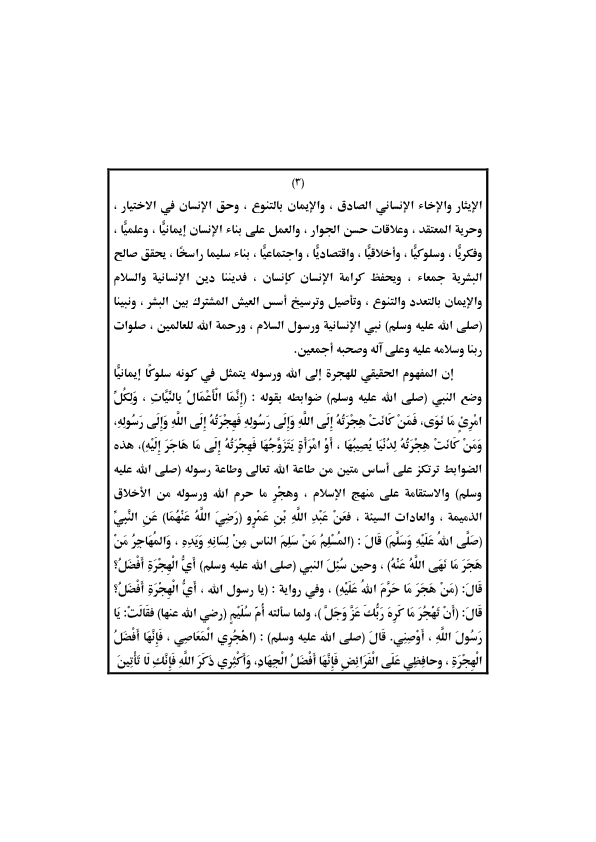 (٣)
الإيثار والإخاء الإنساني الصادق ، والإيمان بالتنوع ، وحق الإنسان في الاختيار ،
وحرية المعتقد ، وعلاقات حسن الجوار ، والعمل على بناء الإنسان إيمانيًّا ، وعلميًّا ،
وفكريًّا ، وسلوكيًّا ، وأخلاقيًّا ، واقتصاديًّا ، واجتماعيًّا ، بناء سليما راسخًا ، يحقق صالح
البشرية جمعاء ، ويحفظ كرامة الإنسان كإنسان ، فديننا دين الإنسانية والسلام
والإيمان بالتعدد والتنوع ، وتأصيل وترسيخ أسس العيش المشترك بين البشر ، ونبينا
(صلى الله عليه وسلم) نبي الإنسانية ورسول السلام ، ورحمة الله للعالمين ، صلوات
ربنا وسلامه عليه وعلى آله وصحبه أجمعين.
إن المفهوم الحقيقي للهجرة إلى الله ورسوله يتمثل في كونه سلوكًا إيمانيًّا
وضع النبي (صلى الله عليه وسلم) ضوابطه بقوله : (إِنَّمَا الْأَعْمَالُ بِالنِّيَّاتِ ، وَلِكُلِّ
امْرِئٍ مَا نَوَى، فَمَنْ كَانَتْ هِجْرَتُهُ إِلَى اللَّهِ وَإِلَى رَسُولِهِ فَهِجْرَتُهُ إِلَى اللَّهِ وَإِلَى رَسُولِهِ،
وَمَنْ كَانَتْ هِجْرَتُهُ لِدُنْيَا يُصِيبُهَا ، أَوْ امْرَأَةٍ يَتَزَوَّجُهَا فَهِجْرَتُهُ إِلَى مَا هَاجَرَ إِلَيْهِ)، هذه
الضوابط ترتكز على أساس متين من طاعة الله تعالى وطاعة رسوله (صلى الله عليه
وسلم) والاستقامة على منهج الإسلام ، وهجْرِ ما حرم الله ورسوله من الأخلاق
الذميمة ، والعادات السيئة ، فعَنْ عَبْدِ اللَّهِ بْنِ عَمْرٍو (رَضِيَ اللَّهُ عَنْهُمَا) عَنِ النَّبِيِّ
(صَلَّى اللهُ عَلَيْهِ وَسَلَّمَ) قَالَ : (المُسْلِمُ مَنْ سَلِمَ الناس مِنْ لِسَانِهِ وَيَدِهِ ، وَالمُهَاجِرُ مَنْ
هَجَرَ مَا نَهَى اللَّهُ عَنْهُ) ، وحين سُئِلَ النبي (صلى الله عليه وسلم) أَيُّ الْهِجْرَةِ أَفْضَلُ؟
قَالَ: (مَنْ هَجَرَ مَا حَرَّمَ اللهُ عَلَيْهِ) ، وفي رواية : (يا رسول الله ، أَيُّ الْهِجْرَةِ أَفْضَلُ؟
قَالَ: (أَنْ تَهْجُرَ مَا كَرِهَ رَبُّكَ عَزَّ وَجَلَّ )، ولما سألته أُمّ سُلَيْمٍ (رضي الله عنها) فقَالَتْ: يَا
رَسُولَ اللَّهِ ، أَوْصِنِي. قَالَ (صلى الله عليه وسلم) : (اهْجُرِي الْمَعَاصِي ، فَإِنَّهَا أَفْضَلُ
الْهِجْرَةِ ، وحافِظِي عَلَى الْفَرَائِضِ فَإِنَّهَا أَفْضَلُ الْجِهَادِ، وَأَكْثِرِي ذَكَرَ اللَّهِ فَإِنَّكِ لَا تَأْتِينَ